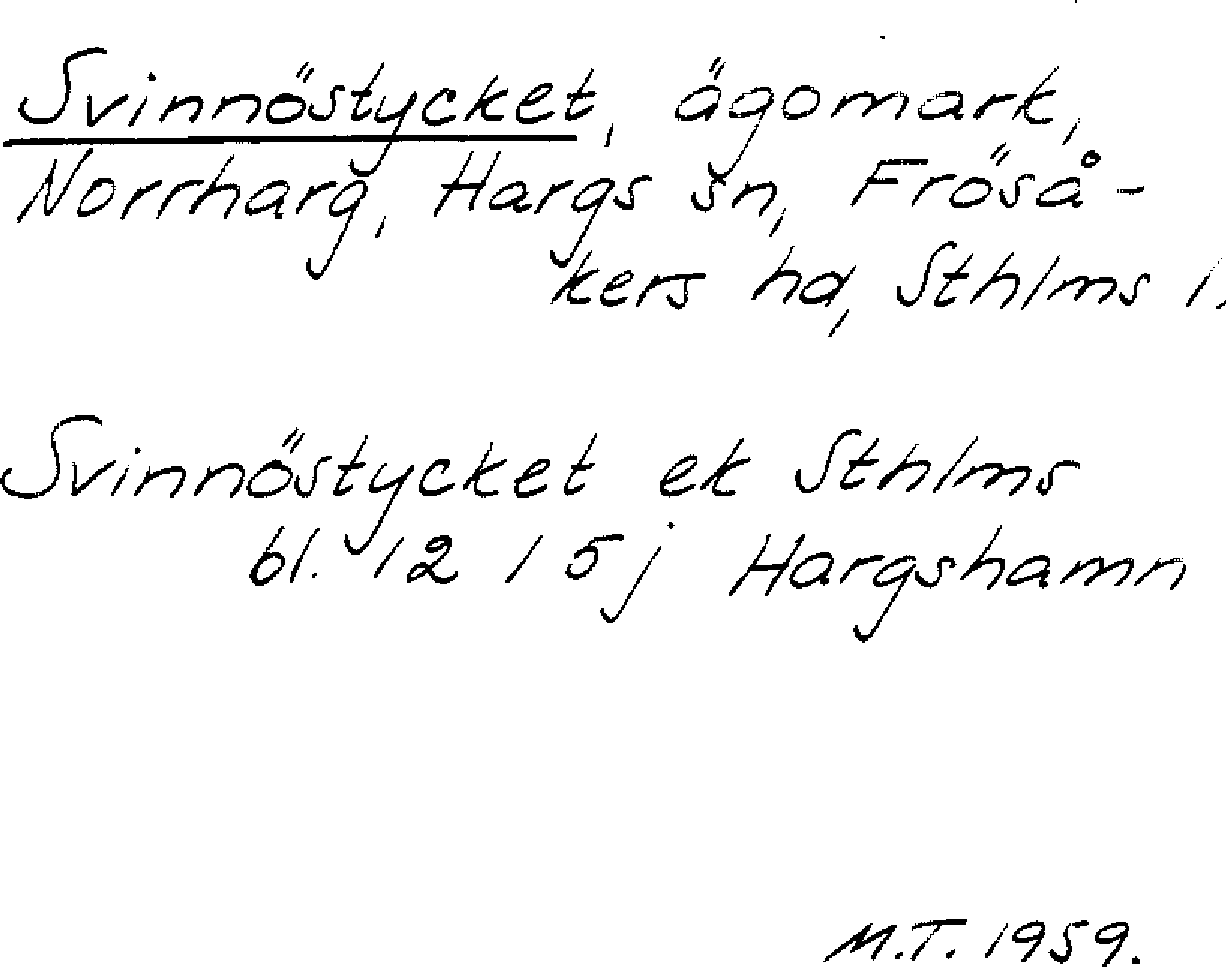 Svinnöstycket, ägomark,
Norrharg, Hargs sn, Fröså-
kers hd, Sthlms l.
Svinnöstycket ek Sthlms
bl. 12 I 5j Hargshamn
M.T. 1959.